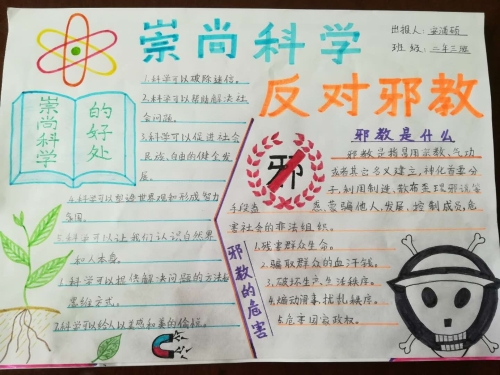 崇尚科学
反对邪教
出报人:
班级:二年三班
崇尚科学
的好处
1.科学可以破除迷信。
2.科学可以帮助解决社
会问题。
3.科学可以促进社会
民族、自由的健全发
展。
4.科学可以塑造世界观和形成智力
5.科学可以让我们认识自然界
和人本身。
科学可以提供解决问题的方法和
思维方式。
7.科学可以给人以美感和美的愉悦。
邪教是什么
邪
邪教是指冒用宗教、气功
或者其它名义建立,神化首要分
子,利用制造、散布迷信邪说等
手段蛊惑、蒙骗他人,发展、控制成员,危
害社会的非法组织。
邪教的危害
1.残害群众生命。
2.骗取群众的血汗钱。
3.破坏生产、生活秩序。
4.煽动滑事、扰乱秩序。
5.危害国家政权。